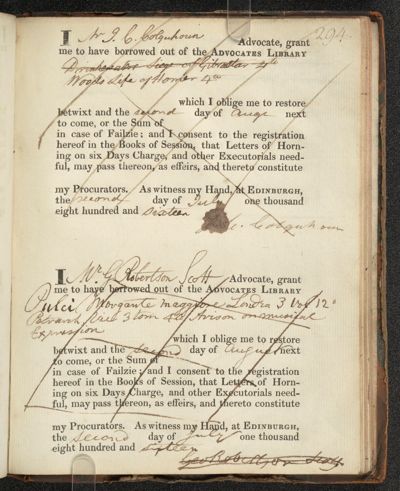 294.
I Mr J. C. Colquhoun Advocate, grant
me to have borrowed out of the ADVOCATES LIBRARY
Drinkwater Siege of Gibraltar 4to
Woods Life of Homer 4to
which I oblige me to restore
betwixt and the second day of Augt next
to come, or the Sum of
in case of Failzie; and I consent to the registration
hereof in the Books of Session, that Letters of Horn-
ing on six Days Charge, and other Executorials need-
ful, may pass thereon, as effeirs, and thereto constitute
my Procurators. As witness my Hand, at EDINBURGH,
the second day of July one thousand
eight hundred and sixteen
C. Colquhoun
I Mr G. Robertson Scott Advocate, grant
me to have borrowed out of the ADVOCATES LIBRARY
Pulci Morgante maggiore Londra 3 Vol 12o
3 tom 4o Avison on musical
Expression
which I oblige me to restore
betwixt and the second day of August next
to come, or the Sum of
in case of Failzie; and I consent to the registration
hereof in the Books of Session, that Letters of Horn-
ing on six Days Charge, and other Executorials need-
ful, may pass thereon, as effeirs, and thereto constitute
my Procurators. As witness my Hand, at EDINBURGH,
the second day of July one thousand
eight hundred and sixteen
Geo Robertson Scott